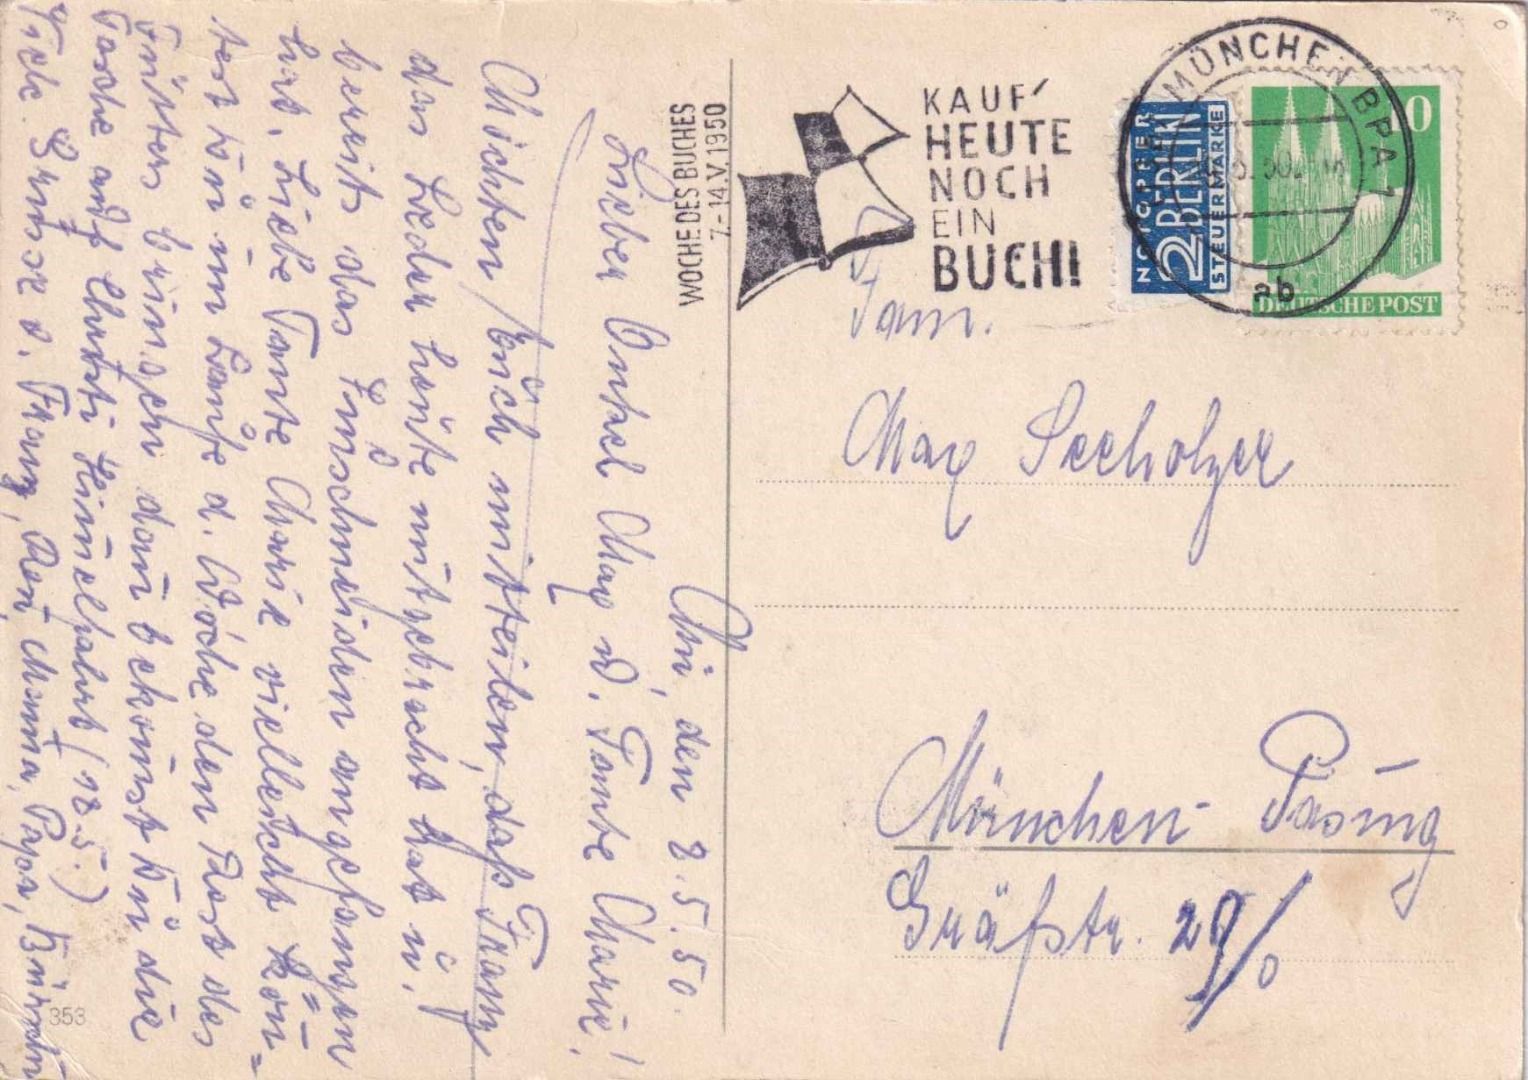 Mü, den 2.5.50.
Lieber Onkel Max u. Tante Marie!
Möchten Euch mitteilen, daß Franz
das Leder heute mitgebracht hat u.
bereits das Zuschneiden angefangen
hat. Liebe Tante Marie vielleicht kön=
test Du im Laufe d. Woche den Rest des
Futters bringen dan bekomst Du die
Tasche auf Christi Himelfahrt (18.5.)
Viele Grüsse v. Franz, Mama, Papa,
353
WOCHE DES BUCHES
7.-14.V.1950
KAUF'
HEUTE
NOCH
EIN
BUCH!
NOTOPFER
2 BERLIN
STEUERMARKE
MÜNCHEN BPA 1
ab
DEUTSCHE POST
Fam.
Max Seeholzer
München-Pasing
Gräfstr.